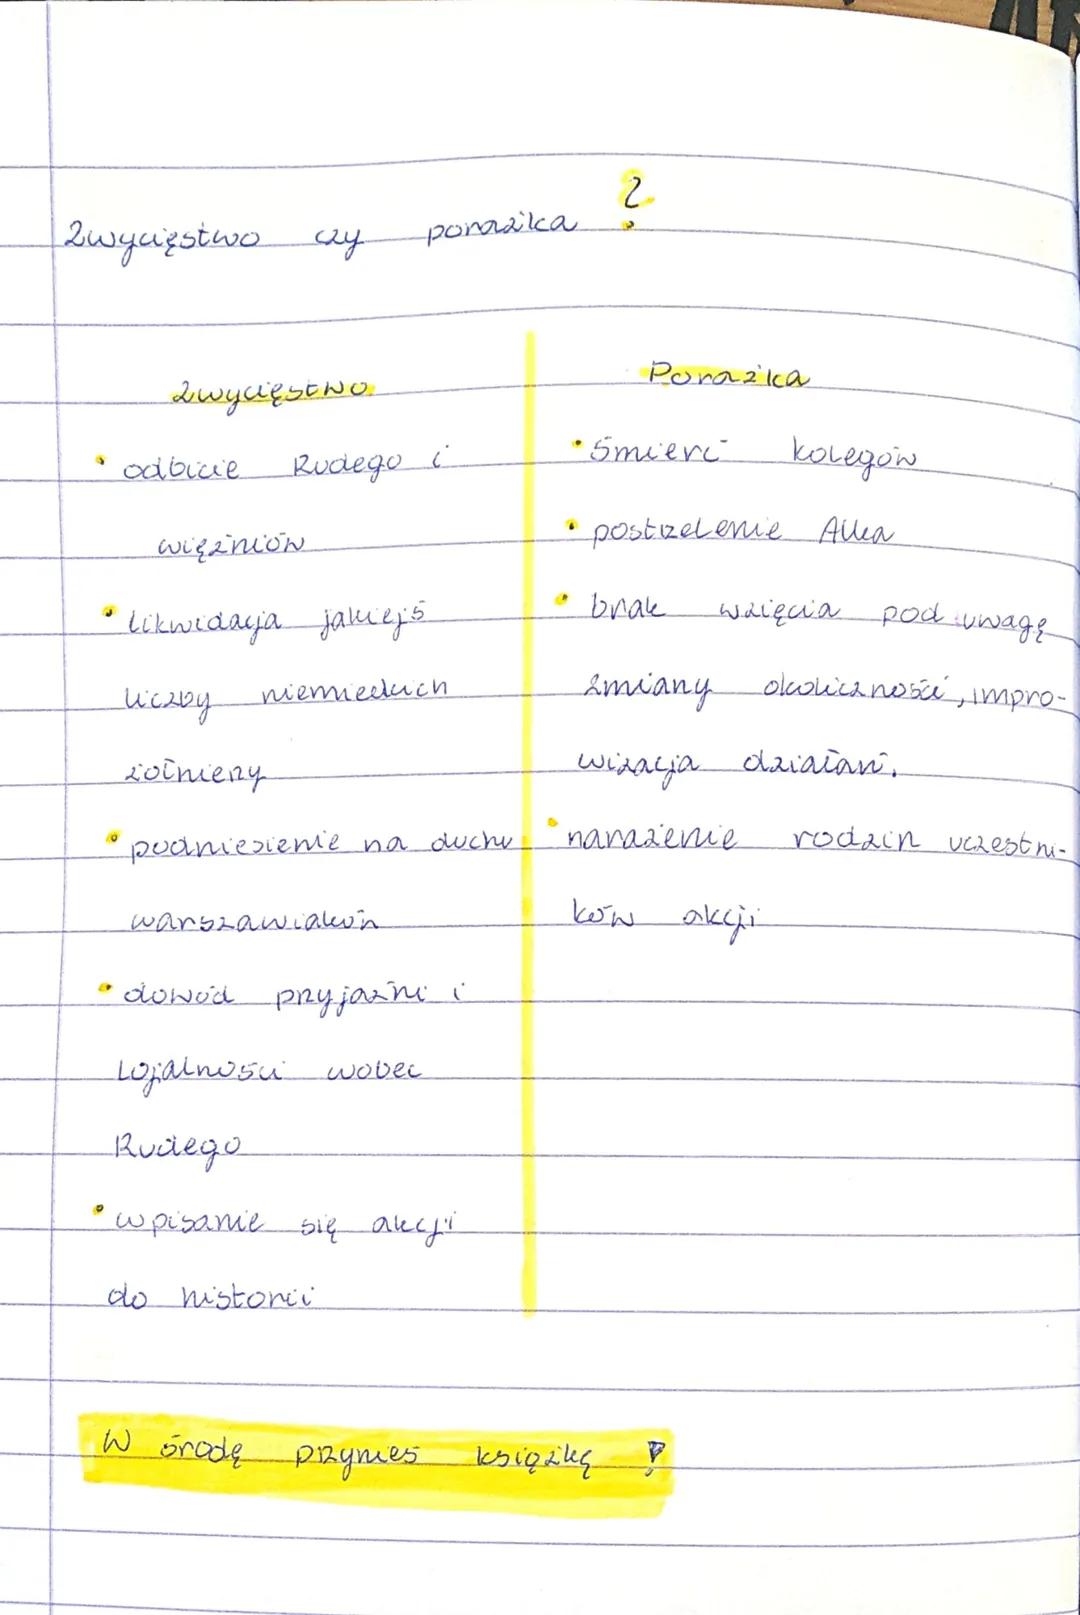 Zwycięstwo czy porażka ?
Zwycięstwo
• odbicie Rudego i
więźniów
• likwidacja jakiejś
liczby niemieckich
żołnierzy
• podniesienie na duchu
warszawiaków
• dowód przyjaźni i
lojalności wobec
Rudego
• wpisanie się akcji
do historii
Porażka
• śmierć kolegów
• postrzelenie Alka
• brak wzięcia pod uwagę
zmiany okoliczności, impro-
wizacja działań.
• narażenie rodzin uczestni-
ków akcji
W środę przynieś książkę !